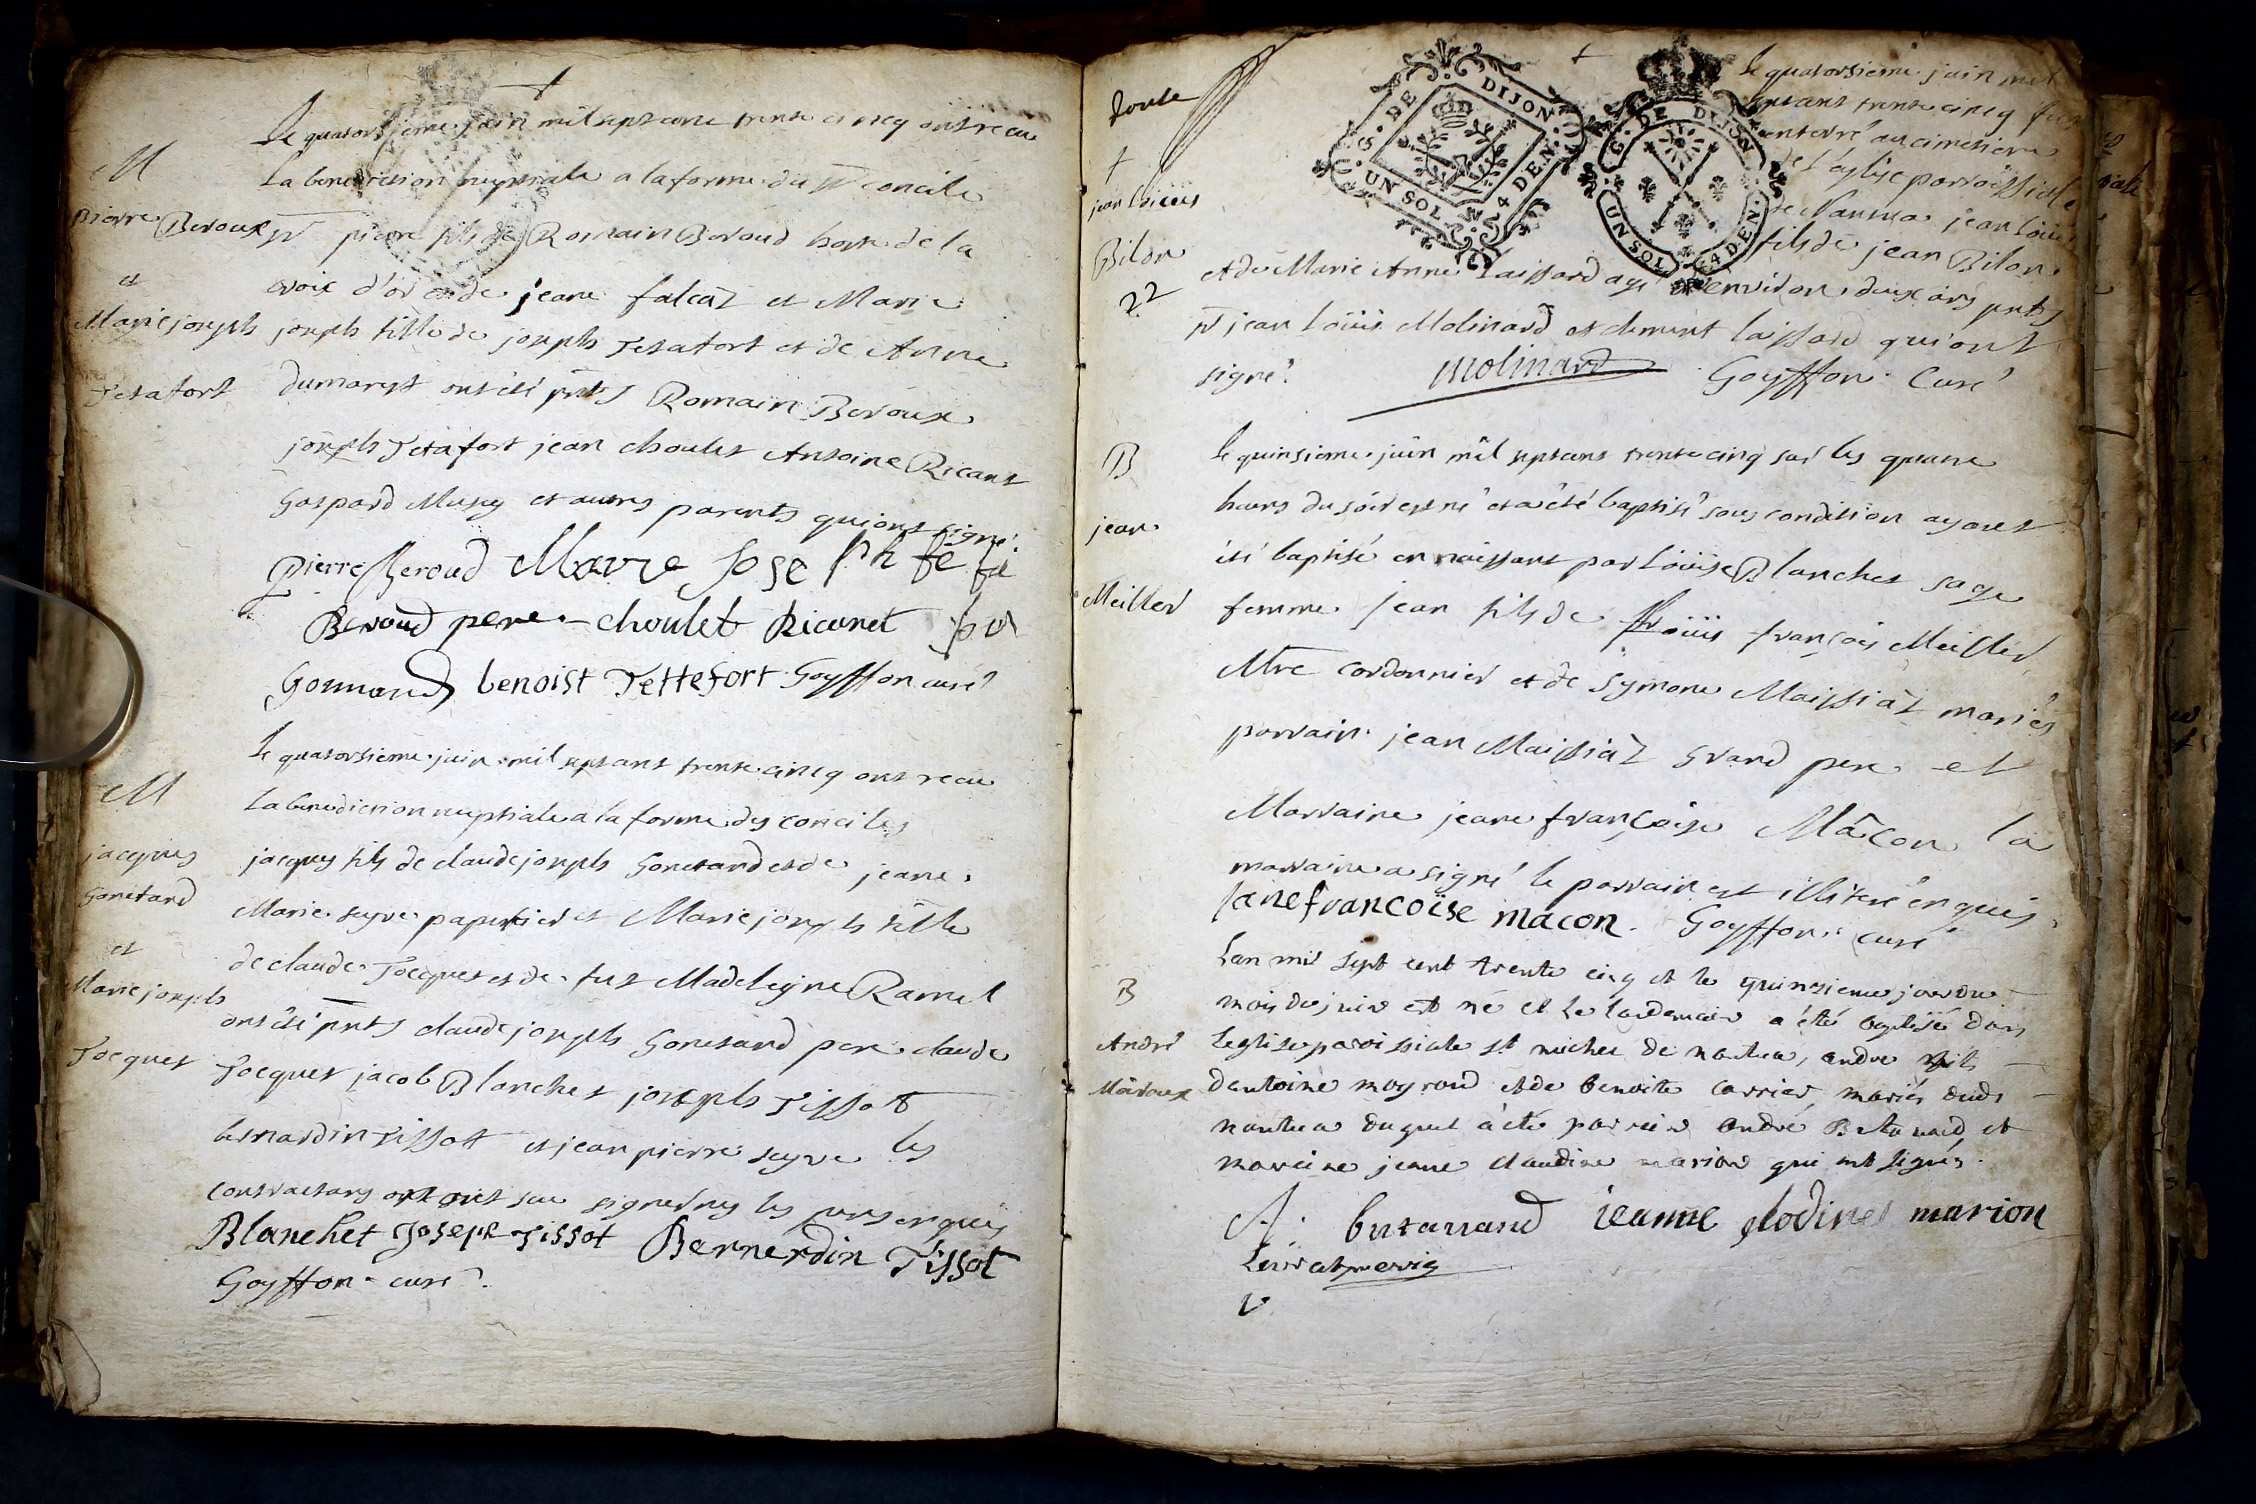 Le quatorsieme juin mil septcent trente cincq ont recu
La benediction nuptiale a la forme du st concile
M
Pierre Beroux
et
Marie joseph
Tetafort
sr pierre fils de Romain Beroud hoste de la
croix d'or et de jeane falcaz et Marie
joseph fille de joseph Tetafort et de Anne
dumarest ont été pnts Romain Beroux
joseph Tetafort jean choulet Antoine Ricanet
Gaspard Musy et autres parents qui ont signé.
Pierre Beroud Marie Joseph te ta
Beroud pere choulet Ricanet for
Gonnand benoist Tettefort Goyffon curé
M
jacques
Gonetand
et
Marie joseph
Jocquet
Le quatorsieme juin mil septcent trente cincq ont recu
La benediction nuptiale a la forme des conciles
jacques fils de claude joseph Gonetand et de jeane
Marie seyve papetier et Marie joseph fille
de claude Jocquet et de fut Madeleine Ramel
ont été pnts claude joseph Gonetand pere claude
Jocquet jacob Blanchet joseph Tissot
bernardin Tissot et jean pierre seyve les
contractans ont sçu signer ny les peres enquis
Blanchet Joseph Tissot Bernerdin Tissot
Goyffon curé
douse
+
jean Loüis
Bilon
22
G. DE DIJON
UN SOL 4 DEN.
G. DE DIJON
UN SOL 4 DEN.
Le quatorsieme juin mil
septcent trente cincq fut
enterré au cimetiere
de l'eglise parroissiale
de Nantua jean Loüis
fils de jean Bilon
et de Marie Anne Laissard agé d'environ deux ans pnts
sr jean Loüis Molinard et clement laissard qui ont
signé.
Molinard Goyffon Curé
B
jean
Meillier
Le quinsieme juin mil septcent trente cinq sur les quatre
heures du soir est né et a été baptisé sous condition ayant
été baptisé en naissant par Loüise Blanchet sage
femme jean fils de Loüis françois Meillier
Mtre cordonnier et de Symone Maissiaz mariés
parrain jean Maissiaz grand pere et
Marraine jeane françoise Mâcon la
marraine a signé le parrain est illiteré enquis
Jane francoise macon. Goyffon curé
B
André
Moiroux
Lan mil sept cent trente cinq et le quinzieme jour du
mois de juin est né et le lendemain a été baptisé dans
leglise paroissiale st michel de nantua, andre fils
dantoine moyroud et de benoite carrier mariés dudt
nantua duquel a été parrein andré Butavand et
mareine jeanne claudine marion qui ont signés.
A. butavand jeanne clodine marion